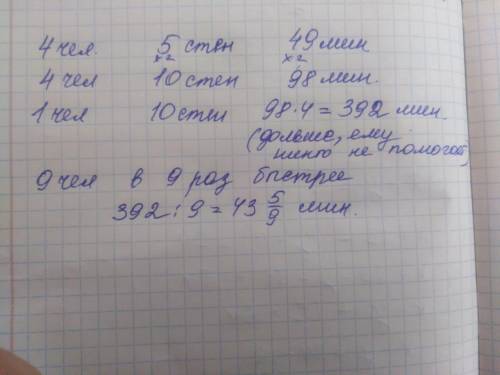 4 чел. 5 стен 49 мин
х2 х2
4 чел 10 стен 98 мин.
1 чел 10 стен 98·4 = 392 мин.
(дольше, ему
никто не помогает)
9 чел в 9 раз быстрее
392 : 9 = 43 5/9 мин.